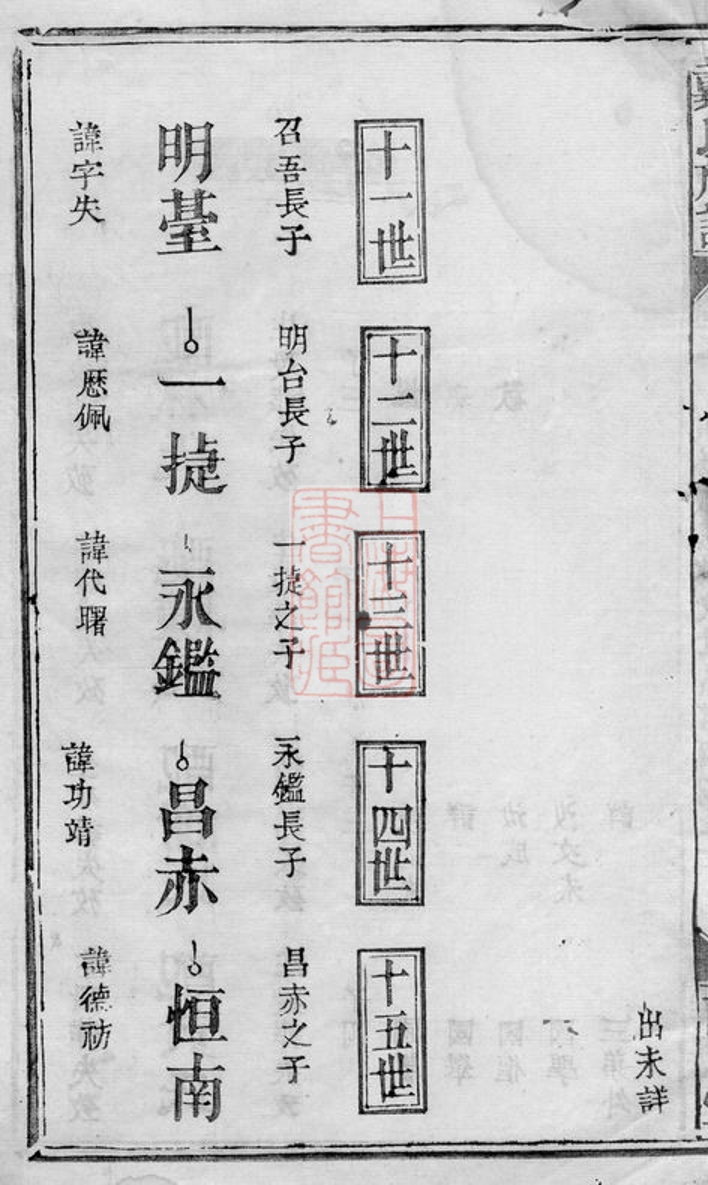 出未詳
十一世
召吾長子
明臺
諱字失
十二世
明台長子
一捷
諱歷佩
十三世
一捷之子
永鑑
諱代曙
十四世
永鑑長子
昌赤
諱功靖
十五世
昌赤之子
恒南
諱德祊